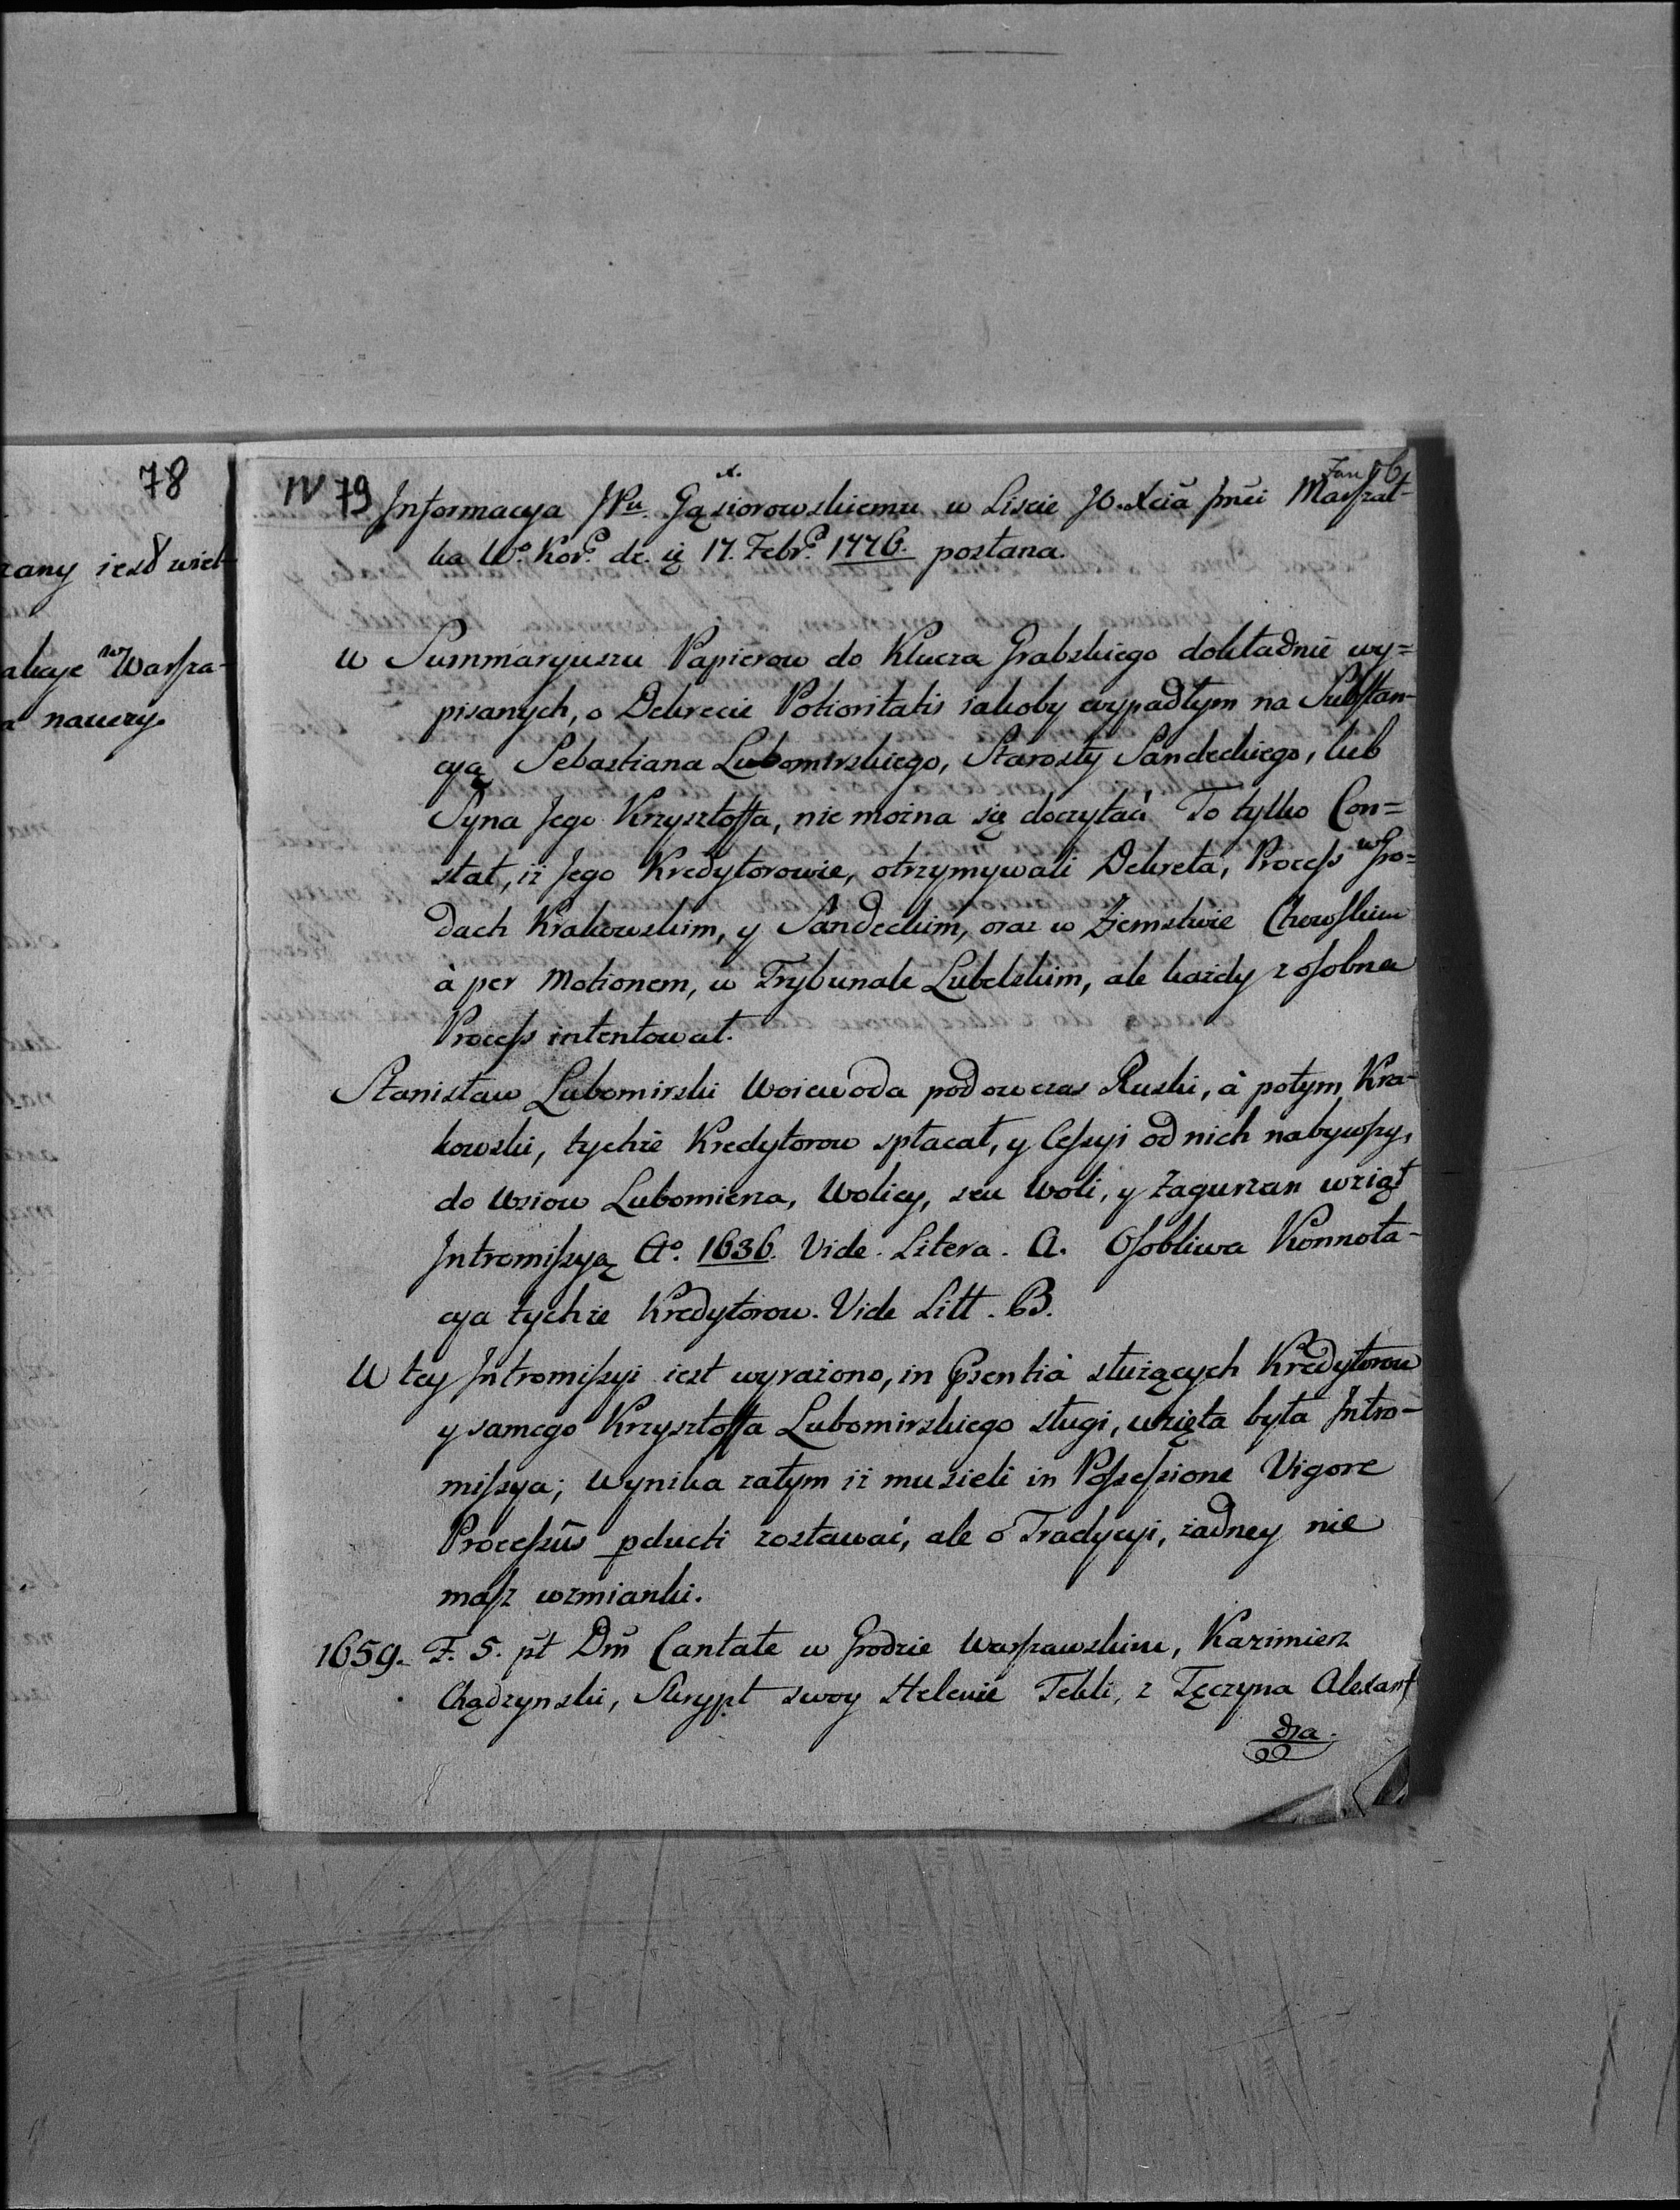 78
zany iest wiel-
akcye w Warsza-
nauczy.
IV 79 Informacya JPu. Gąsiorowskiemu w Liscie JO. Xcia Jmci Marszał-
ka W° Kor° de. 17. Febr° 1776. posłana.
W Summaryuszu Papierow do Klucza Grabskiego dokładnie wy=
pisanych, o Dekrecie Potioritatis iakoby wypadłym na Substan-
cyą Sebastiana Lubomirskiego, Starosty Sandeckiego, lub
Syna Jego Krzysztoffa, nie można się doczytać To tylko Con=
stat, iż Jego Kredytorowie, otrzymywali Dekreta, Process w Gro=
dach Krakowskim, y Sandeckim, oraz w Ziemstwie
à per Motionem, w Trybunale Lubelskim, ale każdy z osobna
Process intentował.
Stanisław Lubomirski Woiewoda podowczas Ruski, à potym Kra-
kowski, tychże Kredytorow spłacał, y Cessyi od nich nabywszy,
do Wsiow Lubomierza, Wolicy, seu Woli, y Zagurzan wziął
Intromissyą A° 1636. Vide. Litera. A. Osobliwa Konnota-
cya tychże Kredytorow. Vide Litt. B.
W tey Intromissyi iest wyrażono, in Psentià służących Kredytorow
y samego Krzysztoffa Lubomirskiego sługi, wzięta była Intro-
missya; Wynika zatym iż musieli in Possessione Vigore
Processûs pducti zostawać, ale o Tradycyi, żadney nie
masz wzmianki.
1659. F. 5. pt Dm Cantate w Grodzie Warszawskim, Kazimierz
Chądzynski, Skrypt swoy Helenie Tekli, z Tęczyna Alexan
dra.